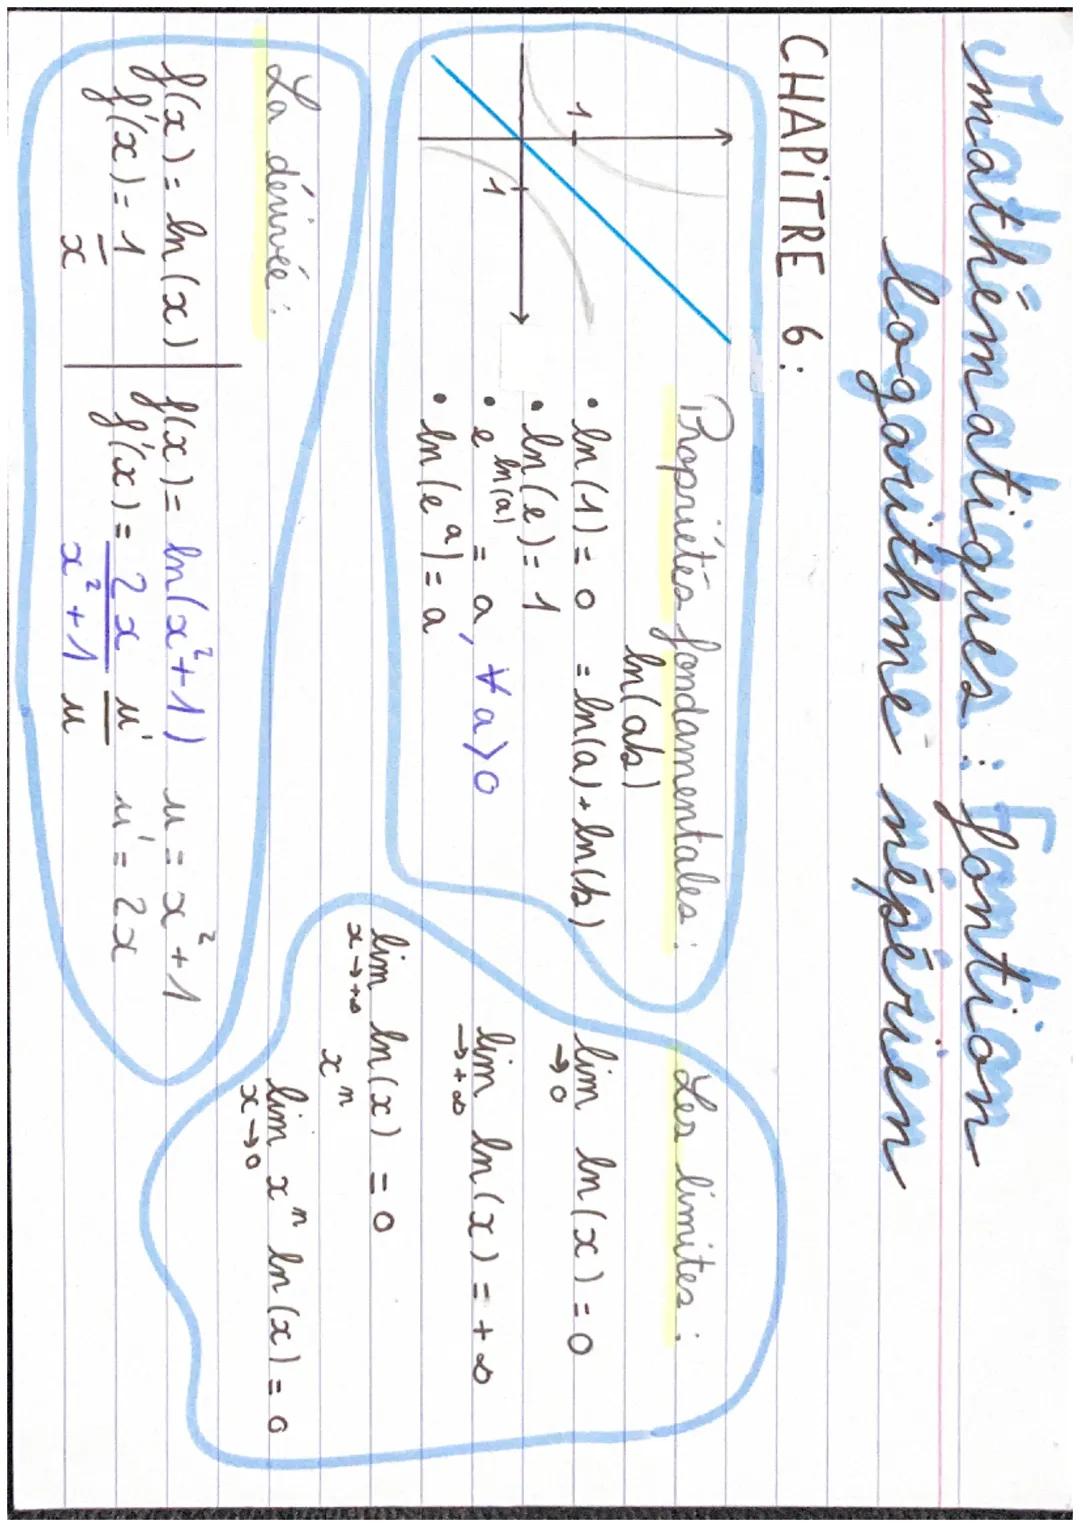 Mathématiques : Fonction
logarithme népérien
CHAPiTRE 6 :
1
1
Propriétés fondamentales :
ln(ab)
• ln(1) = 0 = ln(a) + ln(b)
• ln(e) = 1
• e^ln(a) = a, ∀a>0
• ln(e^a) = a
Les limites :
lim ln(x) = 0
→0
lim ln(x) = +∞
→+∞
lim ln(x) = 0
x→+∞ x^n
lim x^n ln(x) = 0
x→0
La dérivée :
f(x) = ln(x)
f'(x) = 1
x
f(x) = ln(x²+1) u = x²+1
f'(x) = 2x u' u' = 2x
x²+1 u